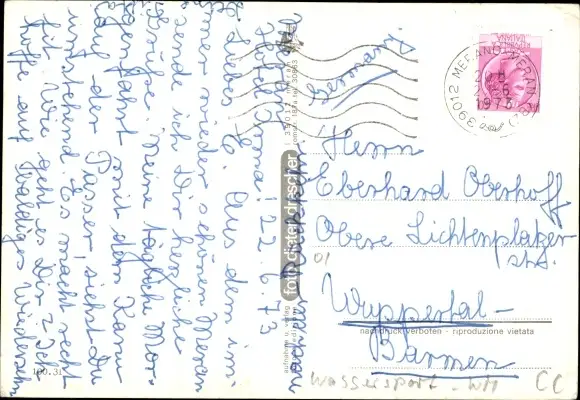 Meran
Hotel Irma! 22.6.73
Lieber E. Aus dem im-
mer wieder schönen Meran
sende ich Dir herzliche
Grüße. Meine tägliche Mor-
genfahrt mit dem Kanu
auf der Passer siehst Du
umstehend. Es macht recht
fit. Wie geht es Dir? Ich
hoffe auf baldiges Wiedersehn
foto dieter drascher
aufnahme u. verlag
39012 MERANO MERAN
22.6.
1973
Germany
Herrn
Eberhard Oberhoff
Obere Lichtenplatzer-
str.
01
Wuppertal-
Barmen
nachdruck verboten · riproduzione vietata
100.31
Wassersport - WM CC